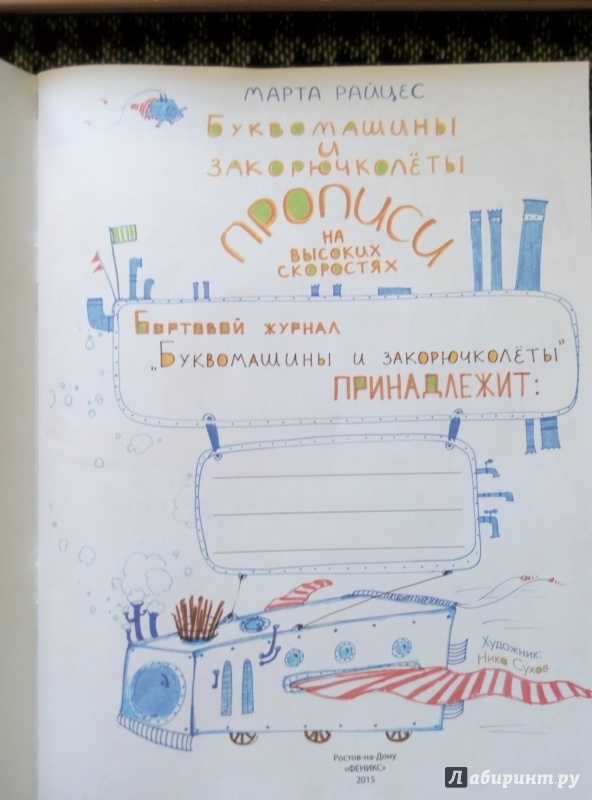 МАРТА РАЙЦЕС
БУКВОМАШИНЫ
И
ЗАКОРЮЧКОЛЁТЫ
ПРОПИСИ
НА
ВЫСОКИХ
СКОРОСТЯХ
БОРТОВОЙ ЖУРНАЛ
„БУКВОМАШИНЫ И ЗАКОРЮЧКОЛЁТЫ"
ПРИНАДЛЕЖИТ:
Художник:
Ника Сухов
Ростов-на-Дону
«ФЕНИКС»
2015
Лабиринт.ру